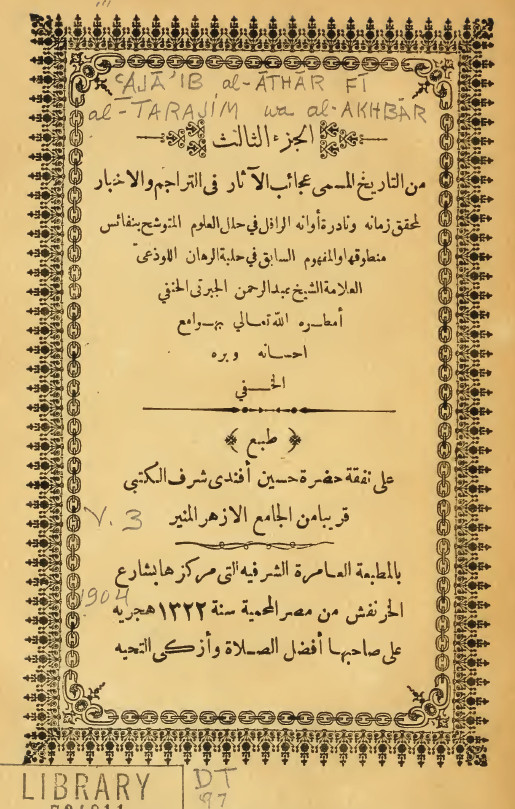 ʿAJĀʾIB al-ĀTHĀR FĪ
al-TARAJIM wa al-AKHBĀR
الجزء الثالث
من التاريخ المسمى عجائب الآثار فى التراجم والاخبار
لمحقق زمانه ونادرة أوانه الرافل في حلل العلوم المتوشح بنفائس
منطوقها والمفهوم السابق في حلبة الرهان اللوذعى
العلامة الشيخ عبد الرحمن الجبرتى الحنفي
أمطره الله تعالي بهوامع
احسانه وبره
الخفي
طبع
على نفقة حضرة حسين أفندى شرف الكتبي
قريبا من الجامع الازهر المنير
V. 3
بالمطبعة العامرة الشرفيه التى مركزها بشارع
1904
الخرنفش من مصر المحمية سنة ١٣٢٢ هجريه
على صاحبها أفضل الصلاة وأزكى التحيه
LIBRARY
DT
97